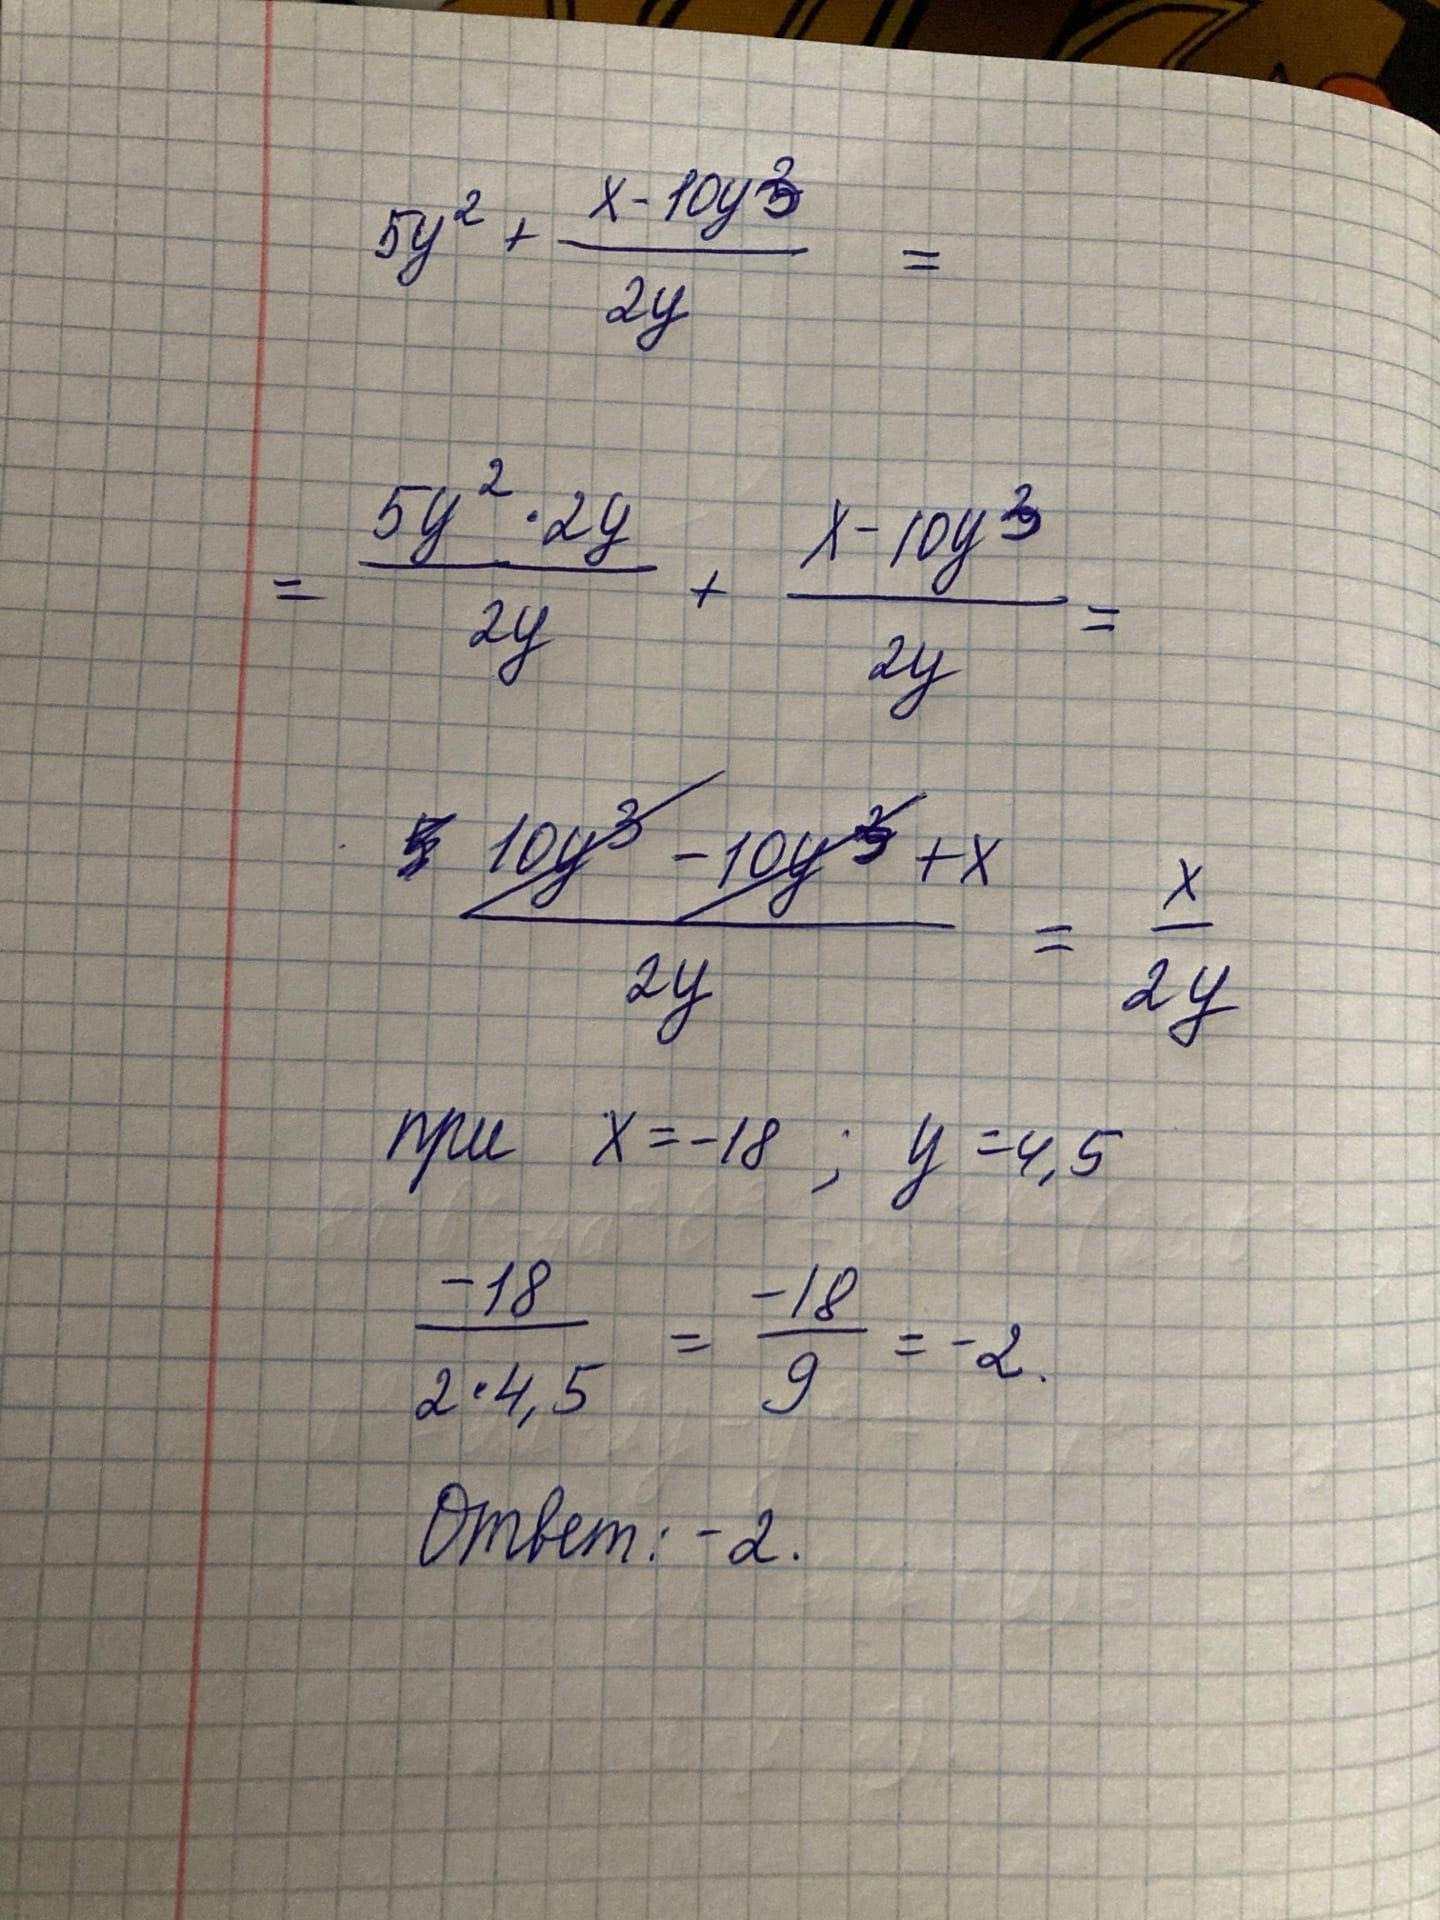 5y² + (x - 10y³)/(2y) =
= (5y² · 2y)/(2y) + (x - 10y³)/(2y) =
(10y³ - 10y³ + x)/(2y) = x/(2y)
при x = -18 ; y = 4,5
-18/(2·4,5) = -18/9 = -2.
Ответ: -2.